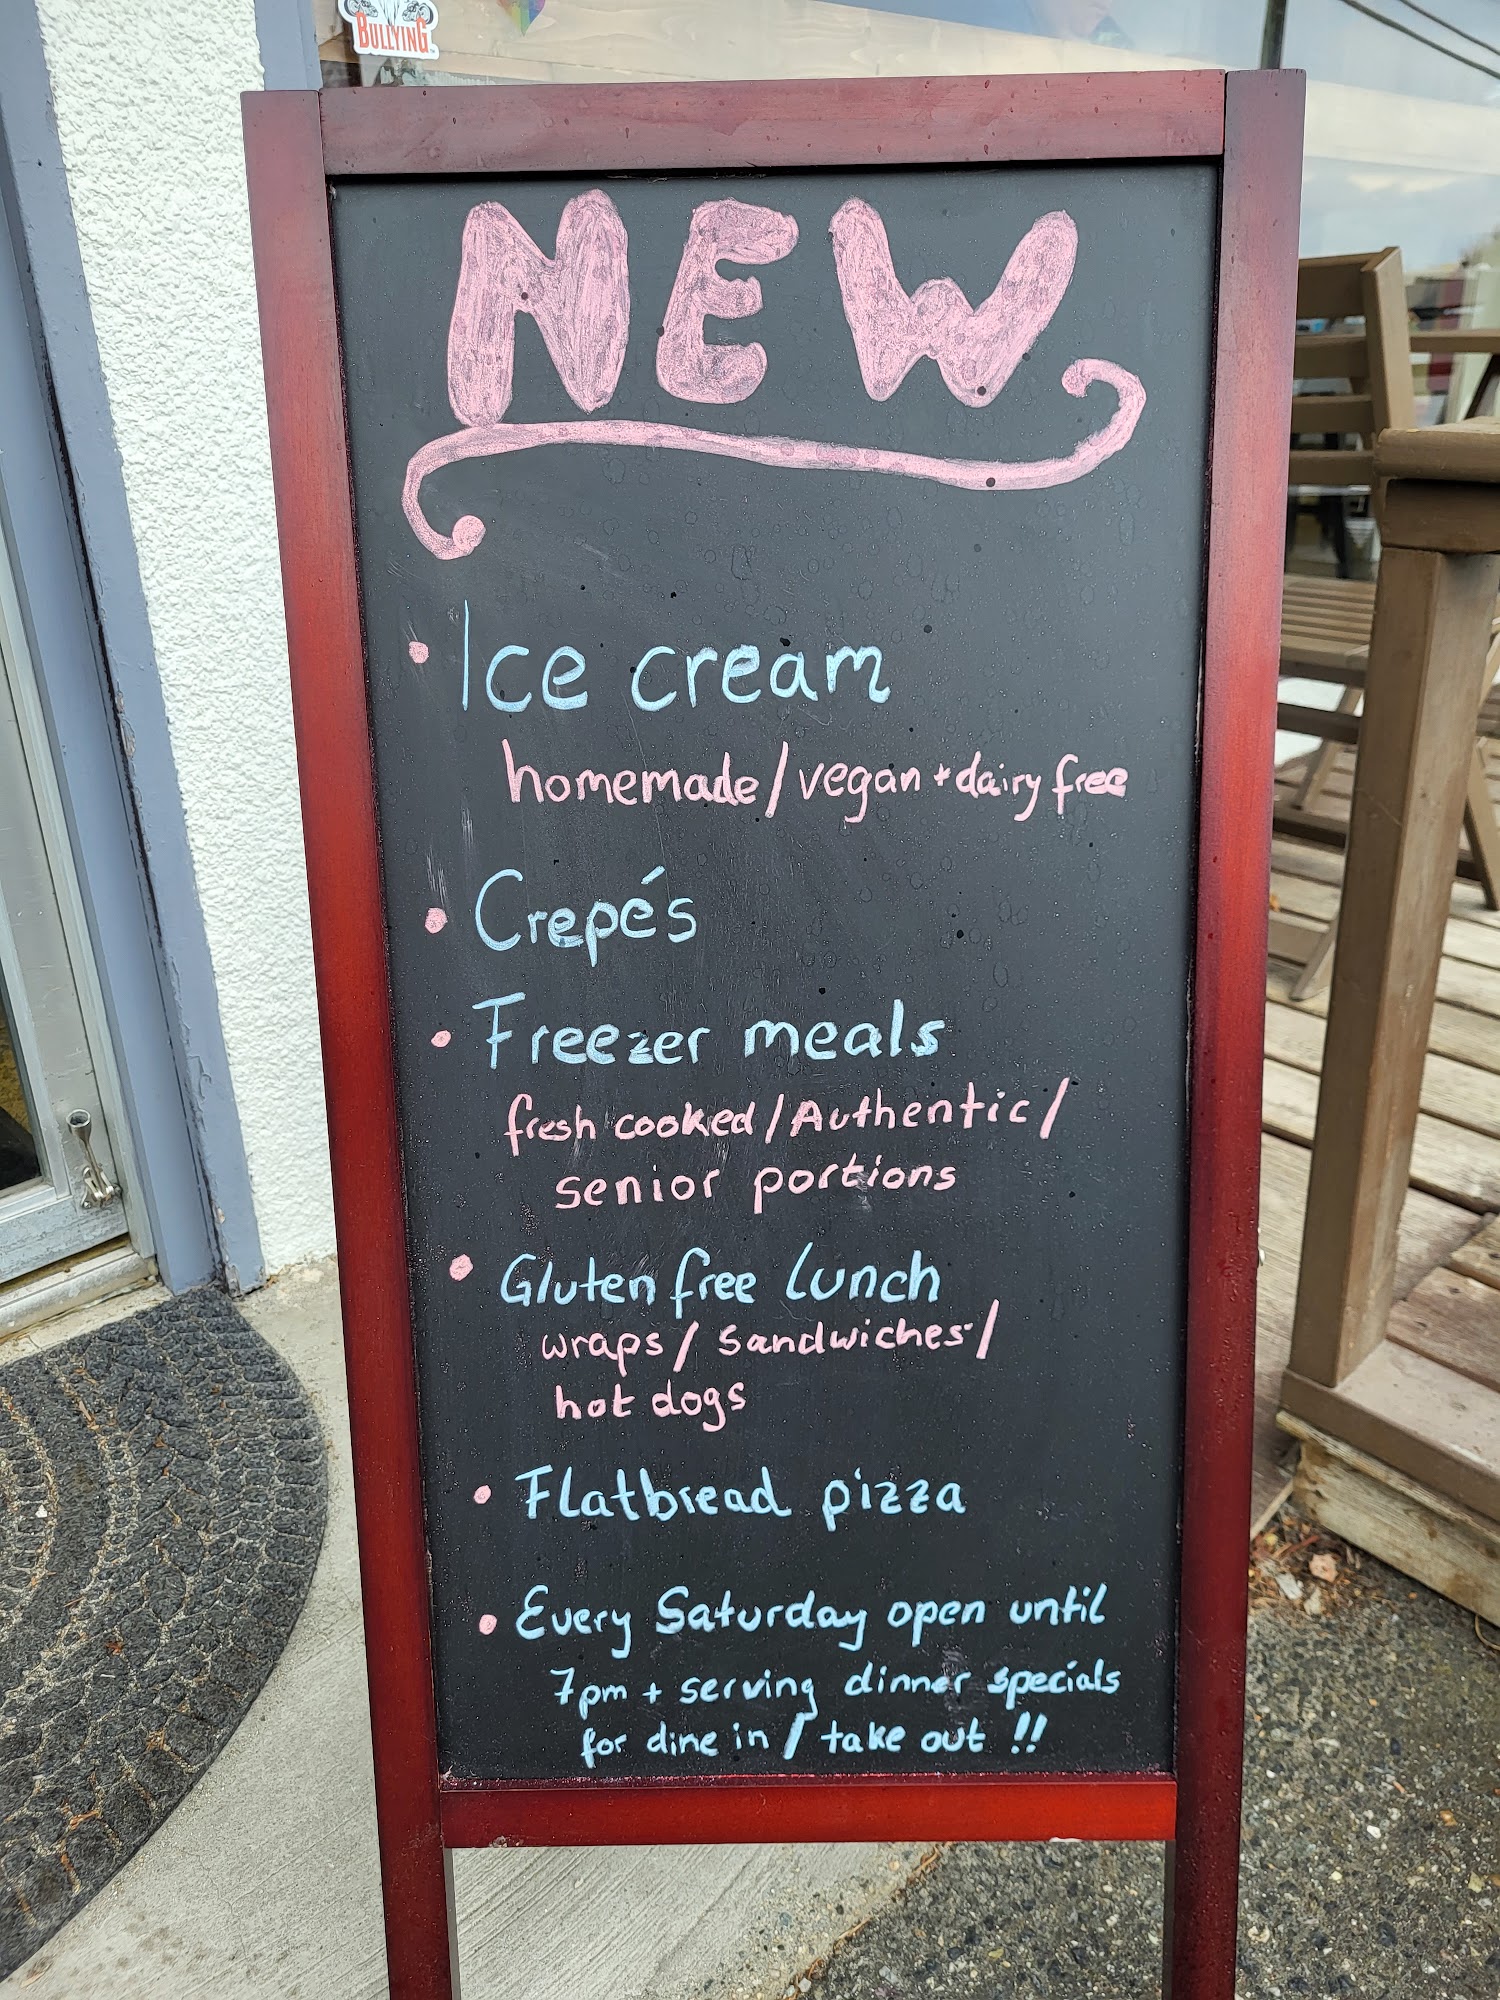 BULLYING
NEW
• Ice cream
homemade/vegan + dairy free
• Crepés
• Freezer meals
fresh cooked/Authentic/
senior portions
• Gluten free lunch
wraps/sandwiches/
hot dogs
• Flatbread pizza
• Every Saturday open until
7pm + serving dinner specials
for dine in / take out !!